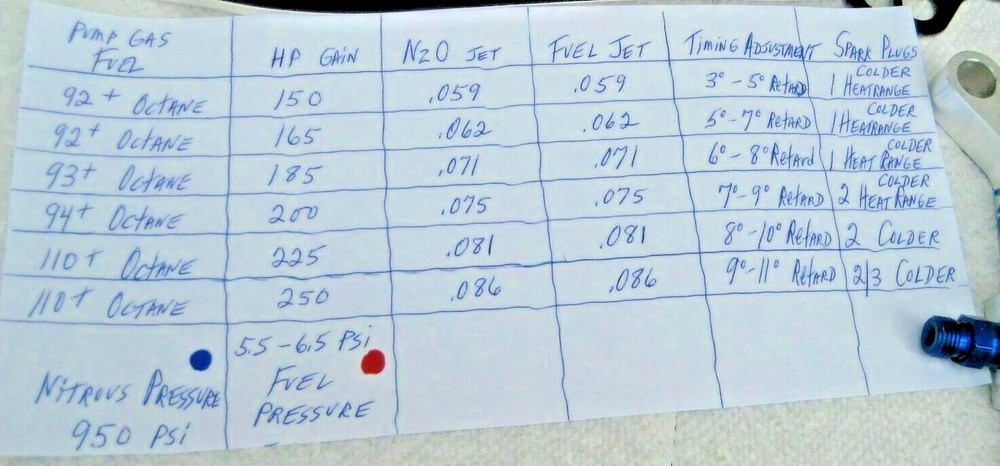 PUMP GAS FUEL HP GAIN N2O JET FUEL JET TIMING ADJUSTMENT SPARK PLUGS
92+ OCTANE 150 .059 .059 3° - 5° Retard 1 COLDER HEATRANGE
92+ OCTANE 165 .062 .062 5° - 7° RETARD 1 COLDER HEATRANGE
93+ OCTANE 185 .071 .071 6° - 8° Retard 1 COLDER HEAT RANGE
94+ OCTANE 200 .075 .075 7° - 9° Retard 2 COLDER HEAT RANGE
110+ OCTANE 225 .081 .081 8° - 10° Retard 2 COLDER
110+ OCTANE 250 .086 .086 9° - 11° Retard 2/3 COLDER
NITROUS PRESSURE
950 PSi
5.5 - 6.5 PSi
FUEL
PRESSURE